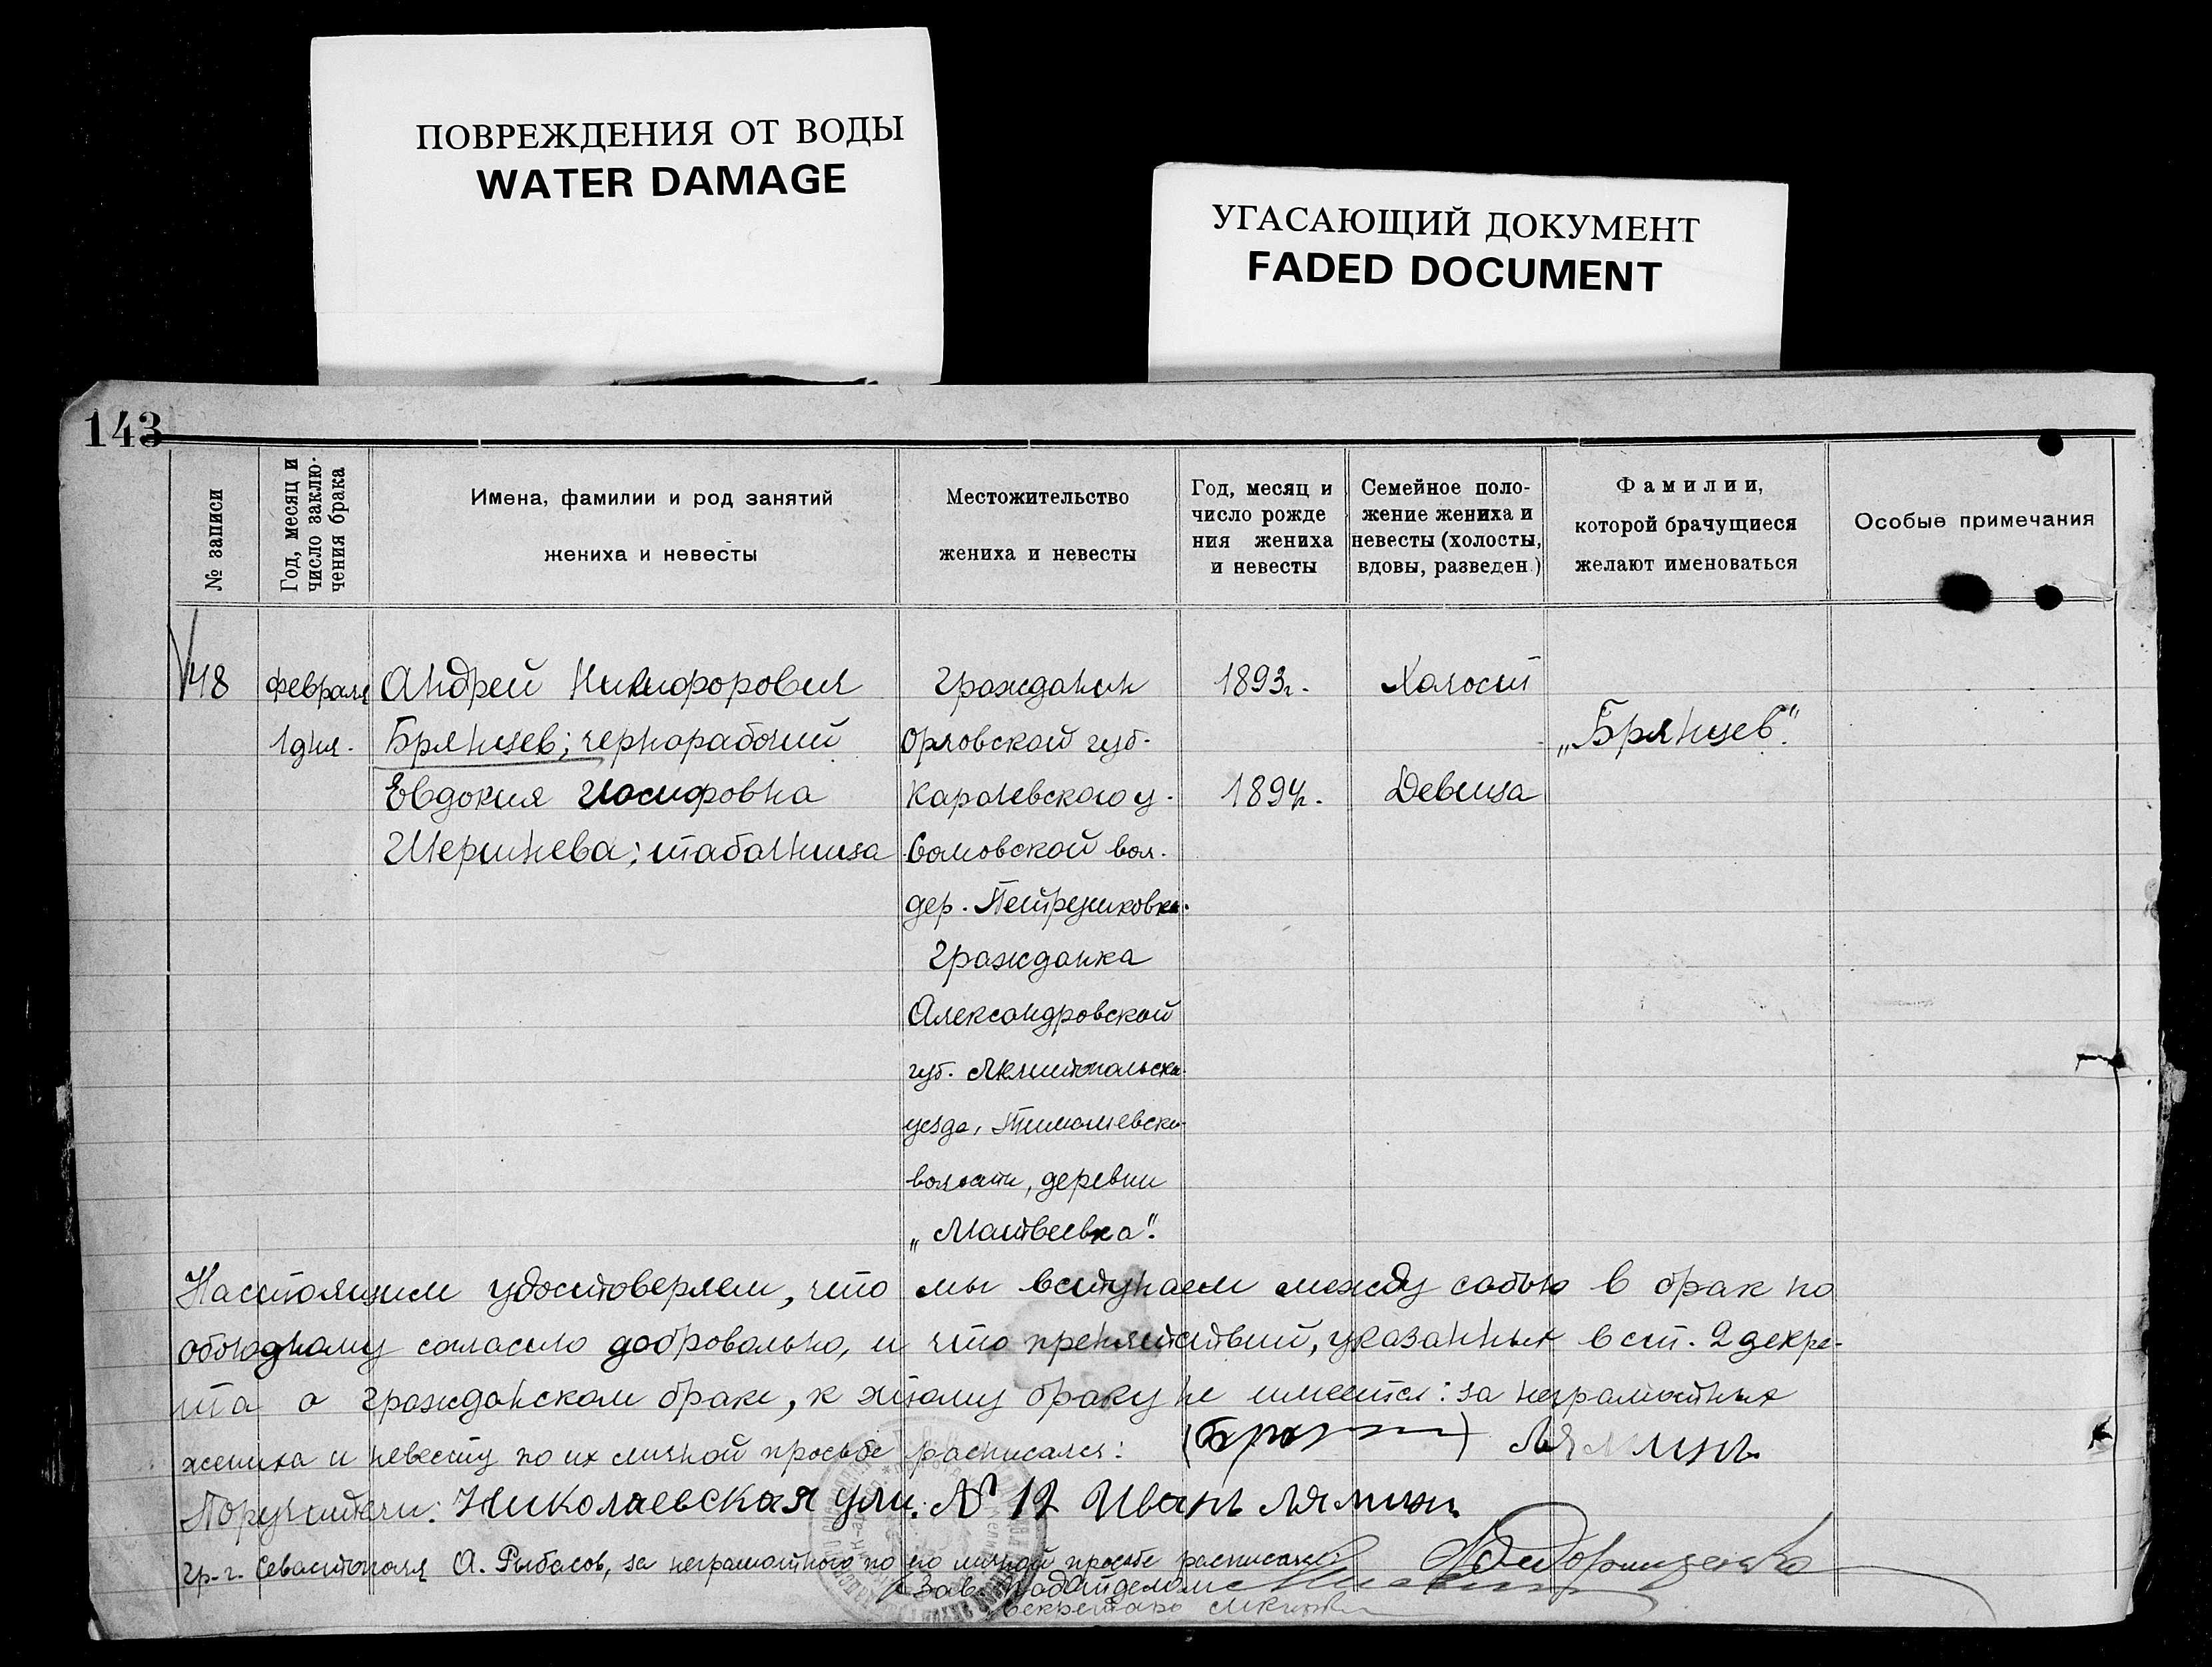 ПОВРЕЖДЕНИЯ ОТ ВОДЫ
WATER DAMAGE
УГАСАЮЩИЙ ДОКУМЕНТ
FADED DOCUMENT
143
№ записи
Год, месяц и
число заклю-
чения брака
Имена, фамилии и род занятий
жениха и невесты
Местожительство
жениха и невесты
Год, месяц и
число рожде
ния жениха
и невесты
Семейное поло-
жение жениха и
невесты (холосты,
вдовы, разведен.)
Фамилии,
которой брачущиеся
желают именоваться
Особые примечания
48
февраля
1 дня.
Андрей Никифорович
Брянцев; чернорабочий
Евдокия Иосифовна
Шершнева; табачница
Гражданин
Орловской губ.
Карачевского у.
Сомовской вол.
дер. Петрушковка.
Гражданка
Александровской
губ. Мелитопольска-
уезда,
волости, деревни
„Матвеевка".
1893г.
1894г.
Холост
Девица
„Брянцев".
Настоящим удостоверяем, что мы вступаем между собою в брак по
обоюдному согласию добровольно, и что препятствий, указанных в ст. 2 декре-
та о гражданском браке, к этому браку не имеется: за неграмотных
жениха и невесту по их личной просьбе расписался: Лямин
Поручители: Николаевская ули. № 12 Иванъ Лямин
гр-г. Севастополя А. Рыбасов, за неграмотного по его личной просьбе расписался:
Зав. Подотделом
Секретарь